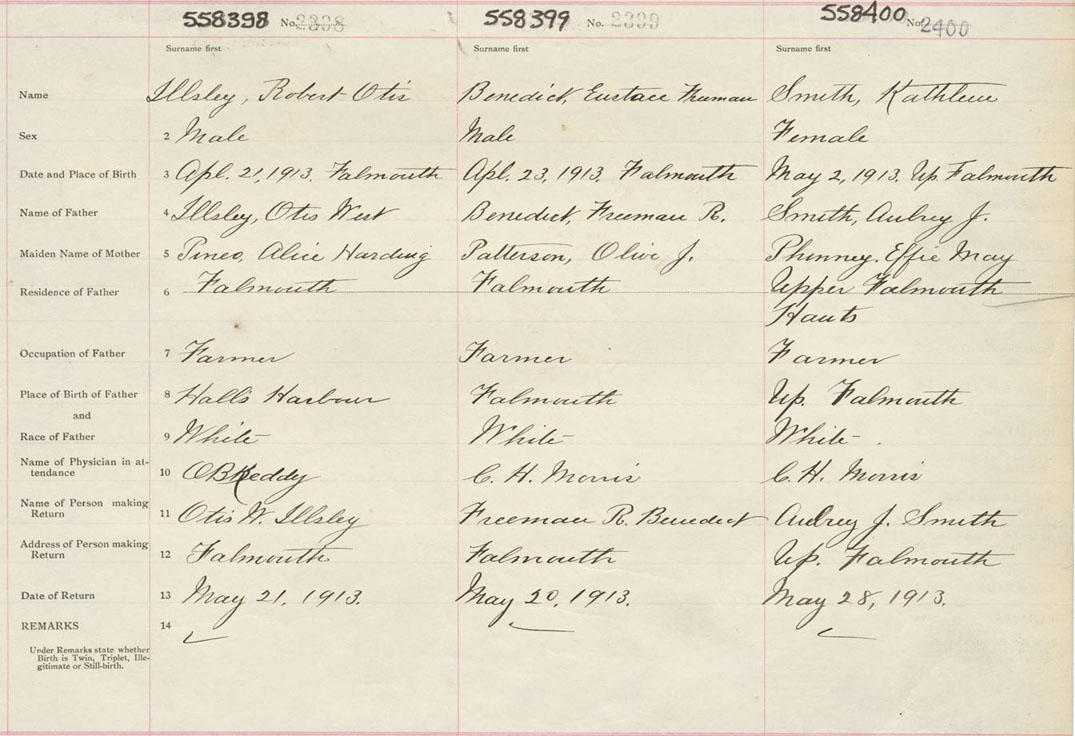 558398 No. 2398 558399 No. 2399 558400 No. 2400
Surname first Surname first Surname first
Name Illsley, Robert Otis Benedict, Eustace Freeman Smith, Kathleen
Sex 2 Male Male Female
Date and Place of Birth 3 Apl. 21, 1913. Falmouth Apl. 23, 1913. Falmouth May 2, 1913. Up. Falmouth
Name of Father 4 Illsley, Otis West Benedict, Freeman R. Smith, Aubrey J.
Maiden Name of Mother 5 Pineo, Alice Harding Patterson, Olive J. Phinney. Effie May
Residence of Father 6 Falmouth Falmouth Upper Falmouth
Hants
Occupation of Father 7 Farmer Farmer Farmer
Place of Birth of Father 8 Halls Harbour Falmouth Up. Falmouth
and
Race of Father 9 White White White
Name of Physician in at-
tendance 10 O B Keddy C. H. Morris C. H. Morris
Name of Person making
Return 11 Otis W. Illsley Freeman R. Benedict Aubrey J. Smith
Address of Person making
Return 12 Falmouth Falmouth Up. Falmouth
Date of Return 13 May 21, 1913. May 20, 1913. May 28, 1913.
REMARKS 14
Under Remarks state whether
Birth is Twin, Triplet, Ille-
gitimate or Still-birth.